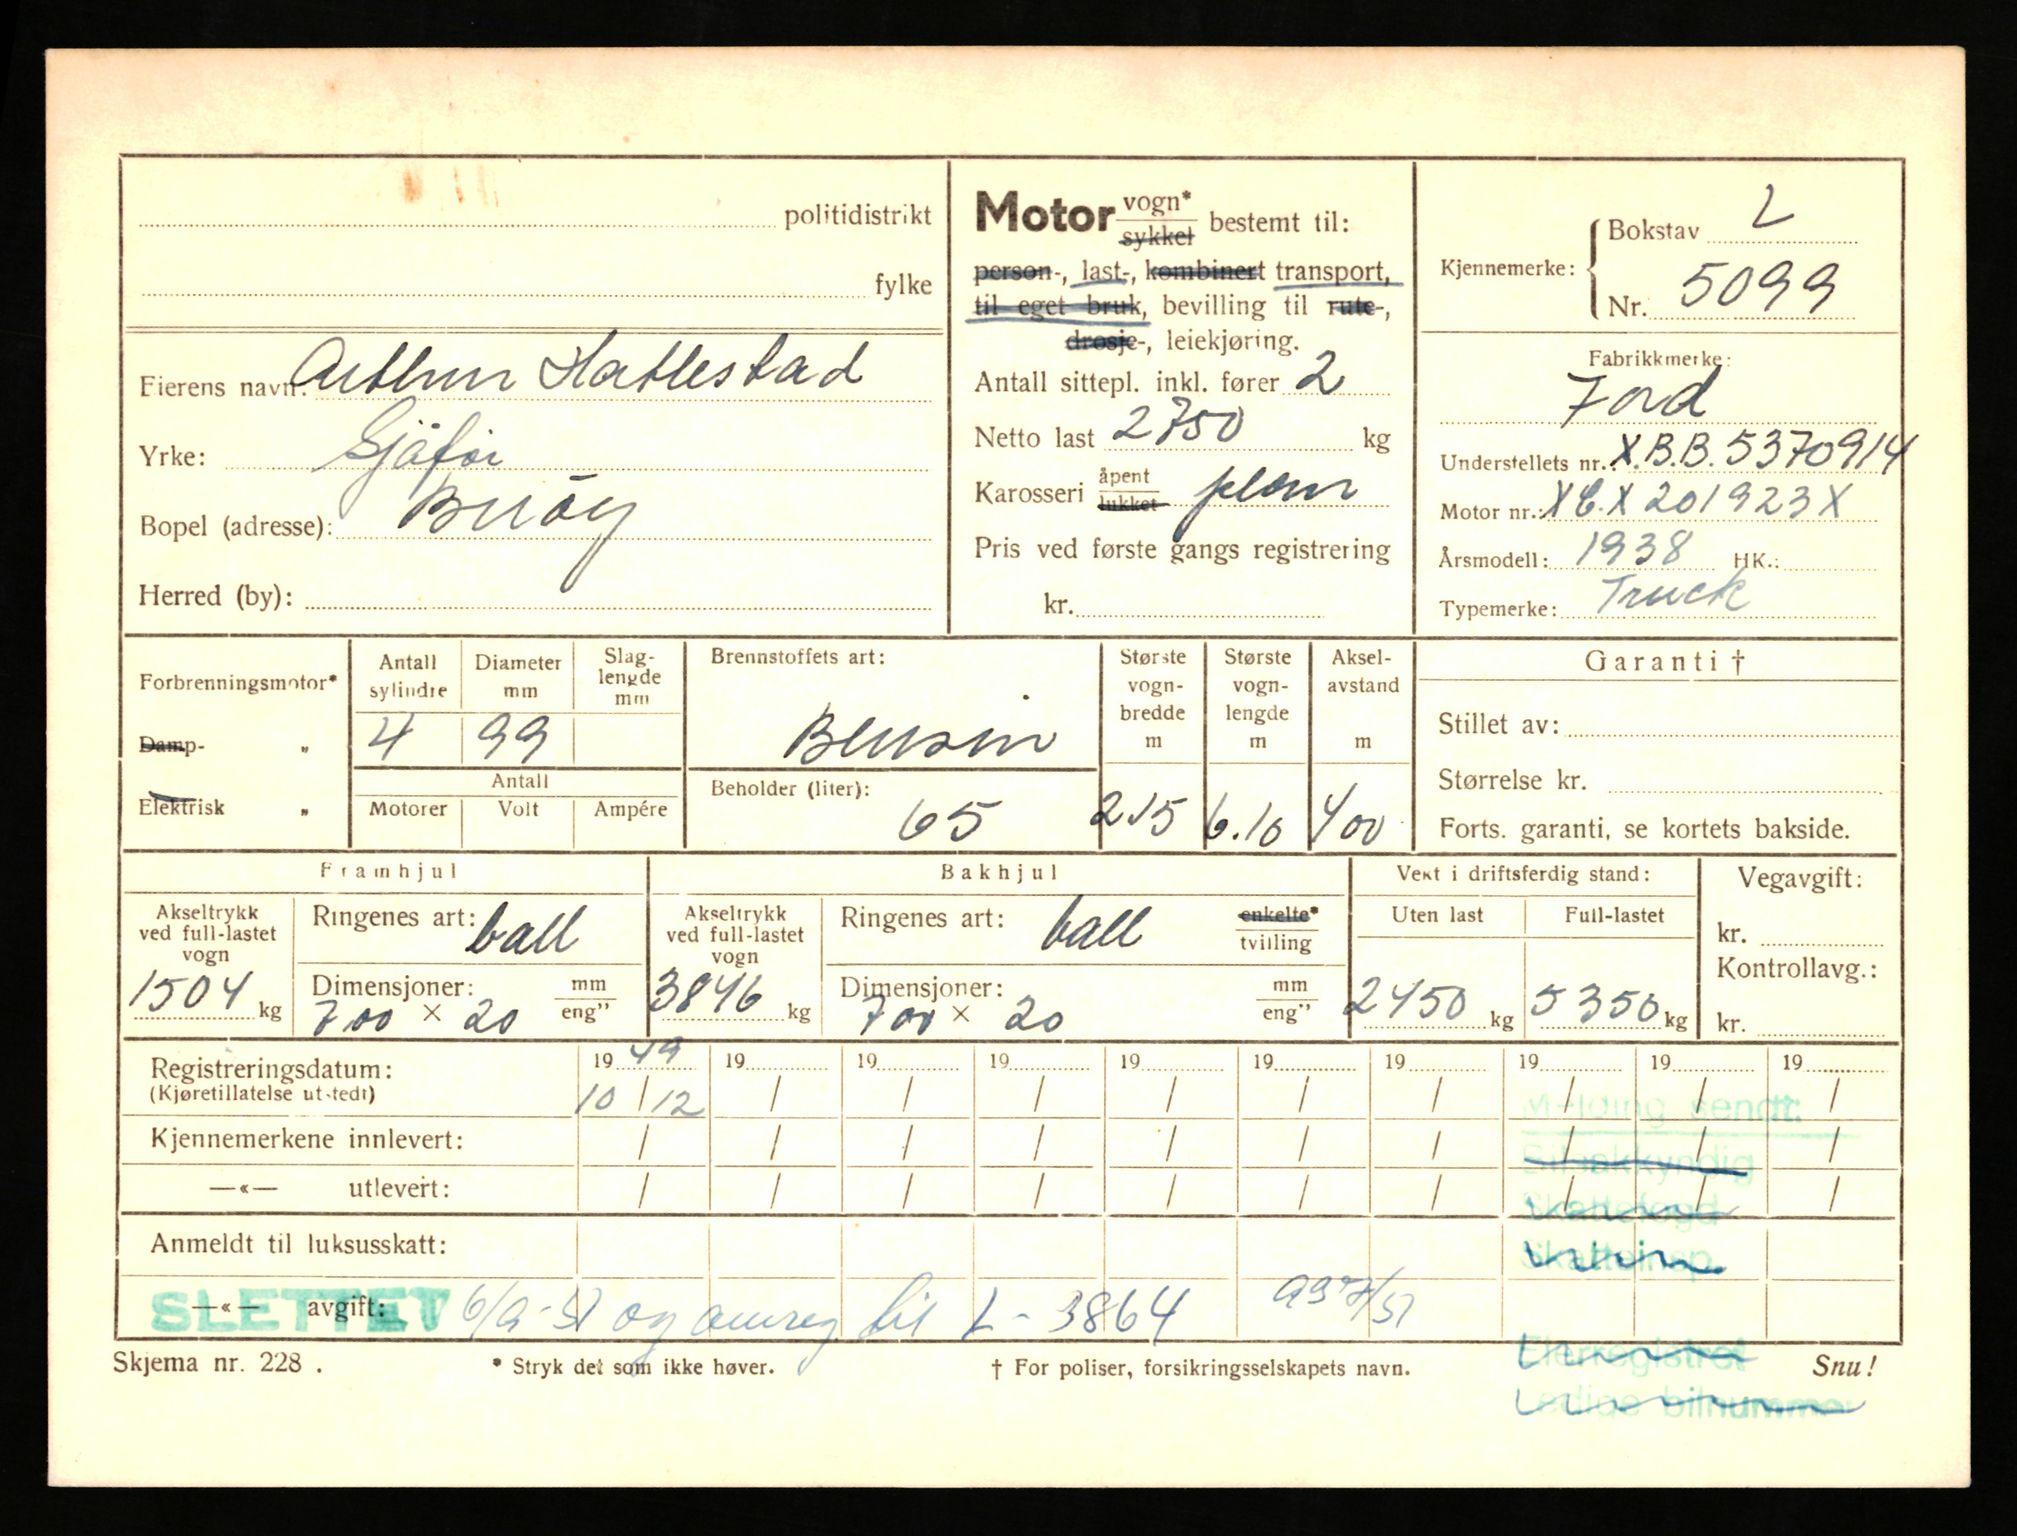 politidistrikt
fylke
Eierens navn: Arthur Hatlestad
Yrke: Sjåfør
Bopel (adresse): Buøy
Herred (by):
Motor vogn* / sykkel bestemt til:
person-, last-, kombinert transport,
til eget bruk, bevilling til rute-,
drosje-, leiekjøring.
Antall sittepl. inkl. fører 2
Netto last 2750 kg
Karosseri åpent / lukket plan
Pris ved første gangs registrering
kr.
Kjennemerke: Bokstav L
Nr. 5099
Fabrikkmerke:
Ford
Understellets nr.: X.B.B. 5370914
Motor nr.: X6.X 201923X
Årsmodell: 1938 HK.:
Typemerke: Truck
Forbrenningsmotor*
Damp- „
Elektrisk „
Antall sylindre Diameter mm Slag-lengde mm
4 99
Antall
Motorer Volt Ampére
Brennstoffets art:
Bensin
Beholder (liter):
65
Største vogn-bredde m Største vogn-lengde m Aksel-avstand m
2.15 6.10 400
Garanti †
Stillet av:
Størrelse kr.
Forts. garanti, se kortets bakside.
Framhjul
Akseltrykk ved full-lastet vogn
1504 kg
Ringenes art: ball
Dimensjoner: mm / eng”
700 × 20
Bakhjul
Akseltrykk ved full-lastet vogn
3846 kg
Ringenes art: ball enkelte* / tvilling
Dimensjoner: mm / eng”
700 × 20
Vekt i driftsferdig stand:
Uten last Full-lastet
2450 kg 5350 kg
Vegavgift:
kr.
Kontrollavg.:
kr.
Registreringsdatum: 19 49 19 19 19 19 19 19 19 19 19
(Kjøretillatelse utstedt) 10/12 / / / / / / / / /
Kjennemerkene innlevert: / / / / / / / / / /
—«— utlevert: / / / / / / / / / /
Anmeldt til luksusskatt:
—«— avgift:
SLETTET 6/9-51 og omreg til L-3864
Melding sendt:
Bilsakkyndig
Skattefogd
Skatteinsp.
Eierregistret
Ledige bilnummer
Skjema nr. 228. * Stryk det som ikke høver. † For poliser, forsikringsselskapets navn. Snu!